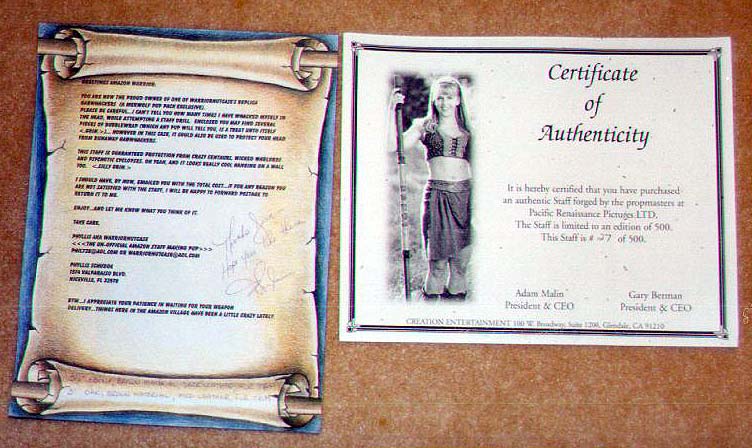 GREETINGS AMAZON WARRIOR:
YOU ARE NOW THE PROUD OWNER OF ONE OF WARRIORNUTCASE'S REPLICA
BARNWHACKERS (A MERWOLF POP PACK EXCLUSIVE).
PLEASE BE CAREFUL...I CAN'T TELL YOU HOW MANY TIMES I HAVE WHACKED MYSELF IN
THE HEAD, WHILE ATTEMPTING A STAFF DRILL. ENCLOSED YOU MAY FIND SEVERAL
PIECES OF BUBBLEWRAP (WHICH ANY POP WILL TELL YOU, IS A TREAT UNTO ITSELF
<..GRIN..>)... HOWEVER IN THIS CASE, IT COULD ALSO BE USED TO PROTECT YOUR HEAD
FROM RUNAWAY BARNWHACKERS.
THIS STAFF IS GUARANTEED PROTECTION FROM CRAZY CENTAURS, WICKED WARLORDS
AND PSYCHOTIC CYCLOPSES. OH YEAH, AND IT LOOKS REALLY COOL HANGING ON A WALL
TOO. <..SILLY GRIN..>
I SHOULD HAVE, BY NOW, EMAILED YOU WITH THE TOTAL COST...IF FOR ANY REASON YOU
ARE NOT SATISFIED WITH THE STAFF, I WILL BE HAPPY TO FORWARD POSTAGE TO
RETURN IT TO ME.
ENJOY...AND LET ME KNOW WHAT YOU THINK OF IT.
TAKE CARE,
PHYLLIS AKA WARRIORNUTCASE
<<<THE UN-OFFICIAL AMAZON STAFF MAKING POP>>>
PHIL728@AOL.COM OR WARRIORNUTCASE@AOL.COM
PHYLLIS
1574 VALPARAISO BLVD.
NICEVILLE, FL 32578
BTW...I APPRECIATE YOUR PATIENCE IN WAITING FOR YOUR WEAPON
DELIVERY...THINGS HERE IN THE AMAZON VILLAGE HAVE BEEN A LITTLE CRAZY LATELY
Hope you like them
Certificate
of
Authenticity
It is hereby certified that you have purchased
an authentic Staff forged by the propmasters at
Pacific Renaissance Pictures LTD.
The Staff is limited to an edition of 500.
This Staff is # 27 of 500.
Adam Malin Gary Berman
President & CEO President & CEO
CREATION ENTERTAINMENT 100 W. Broadway, Suite 1200, Glendale, CA 91210